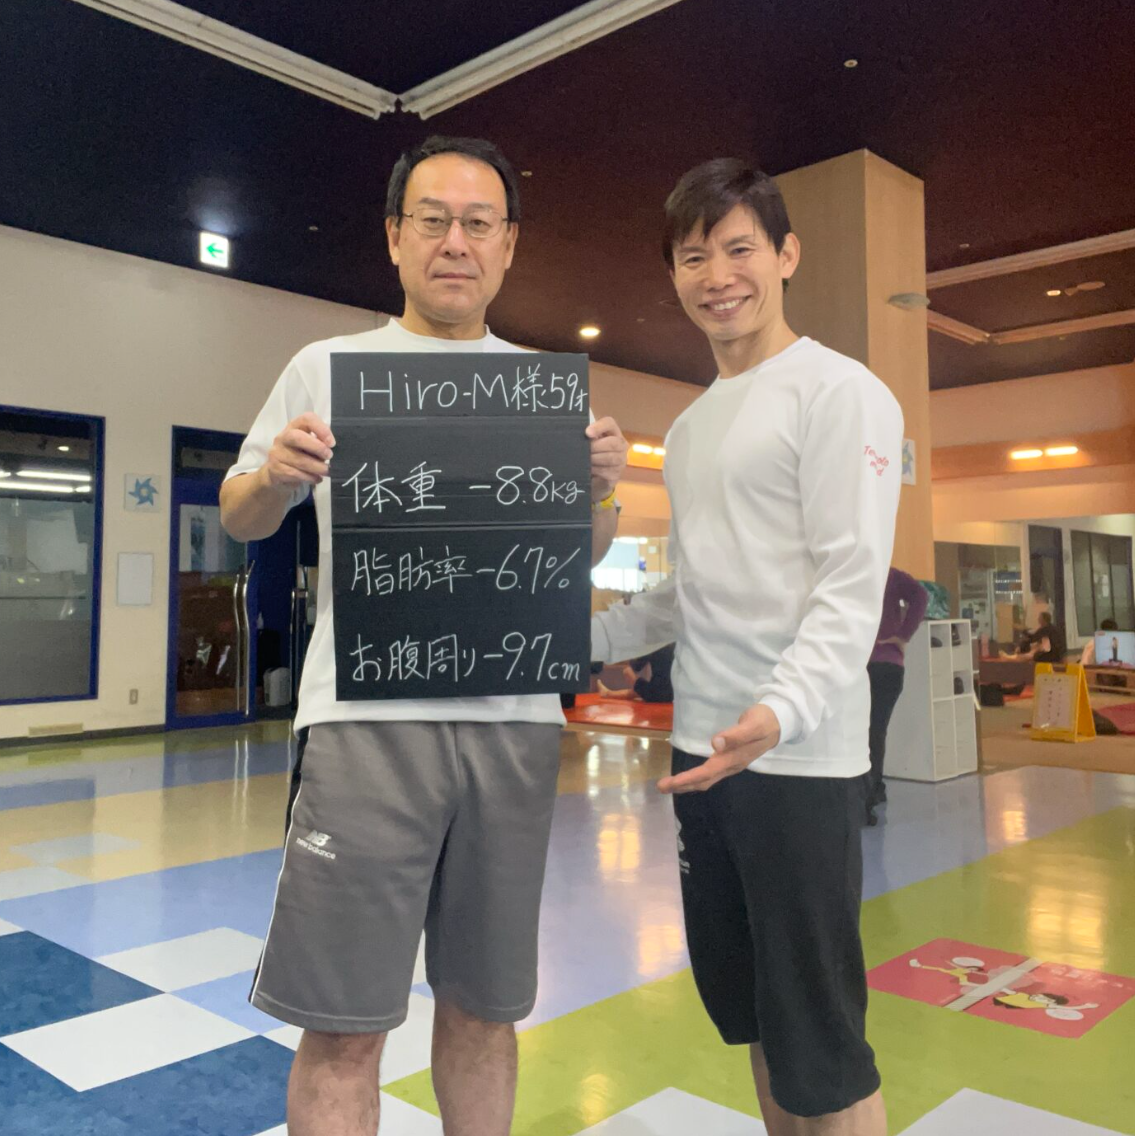 Hiro-M様・59才
体重 -8.8kg
脂肪率-6.7%
お腹周り-9.7cm
NB
new balance